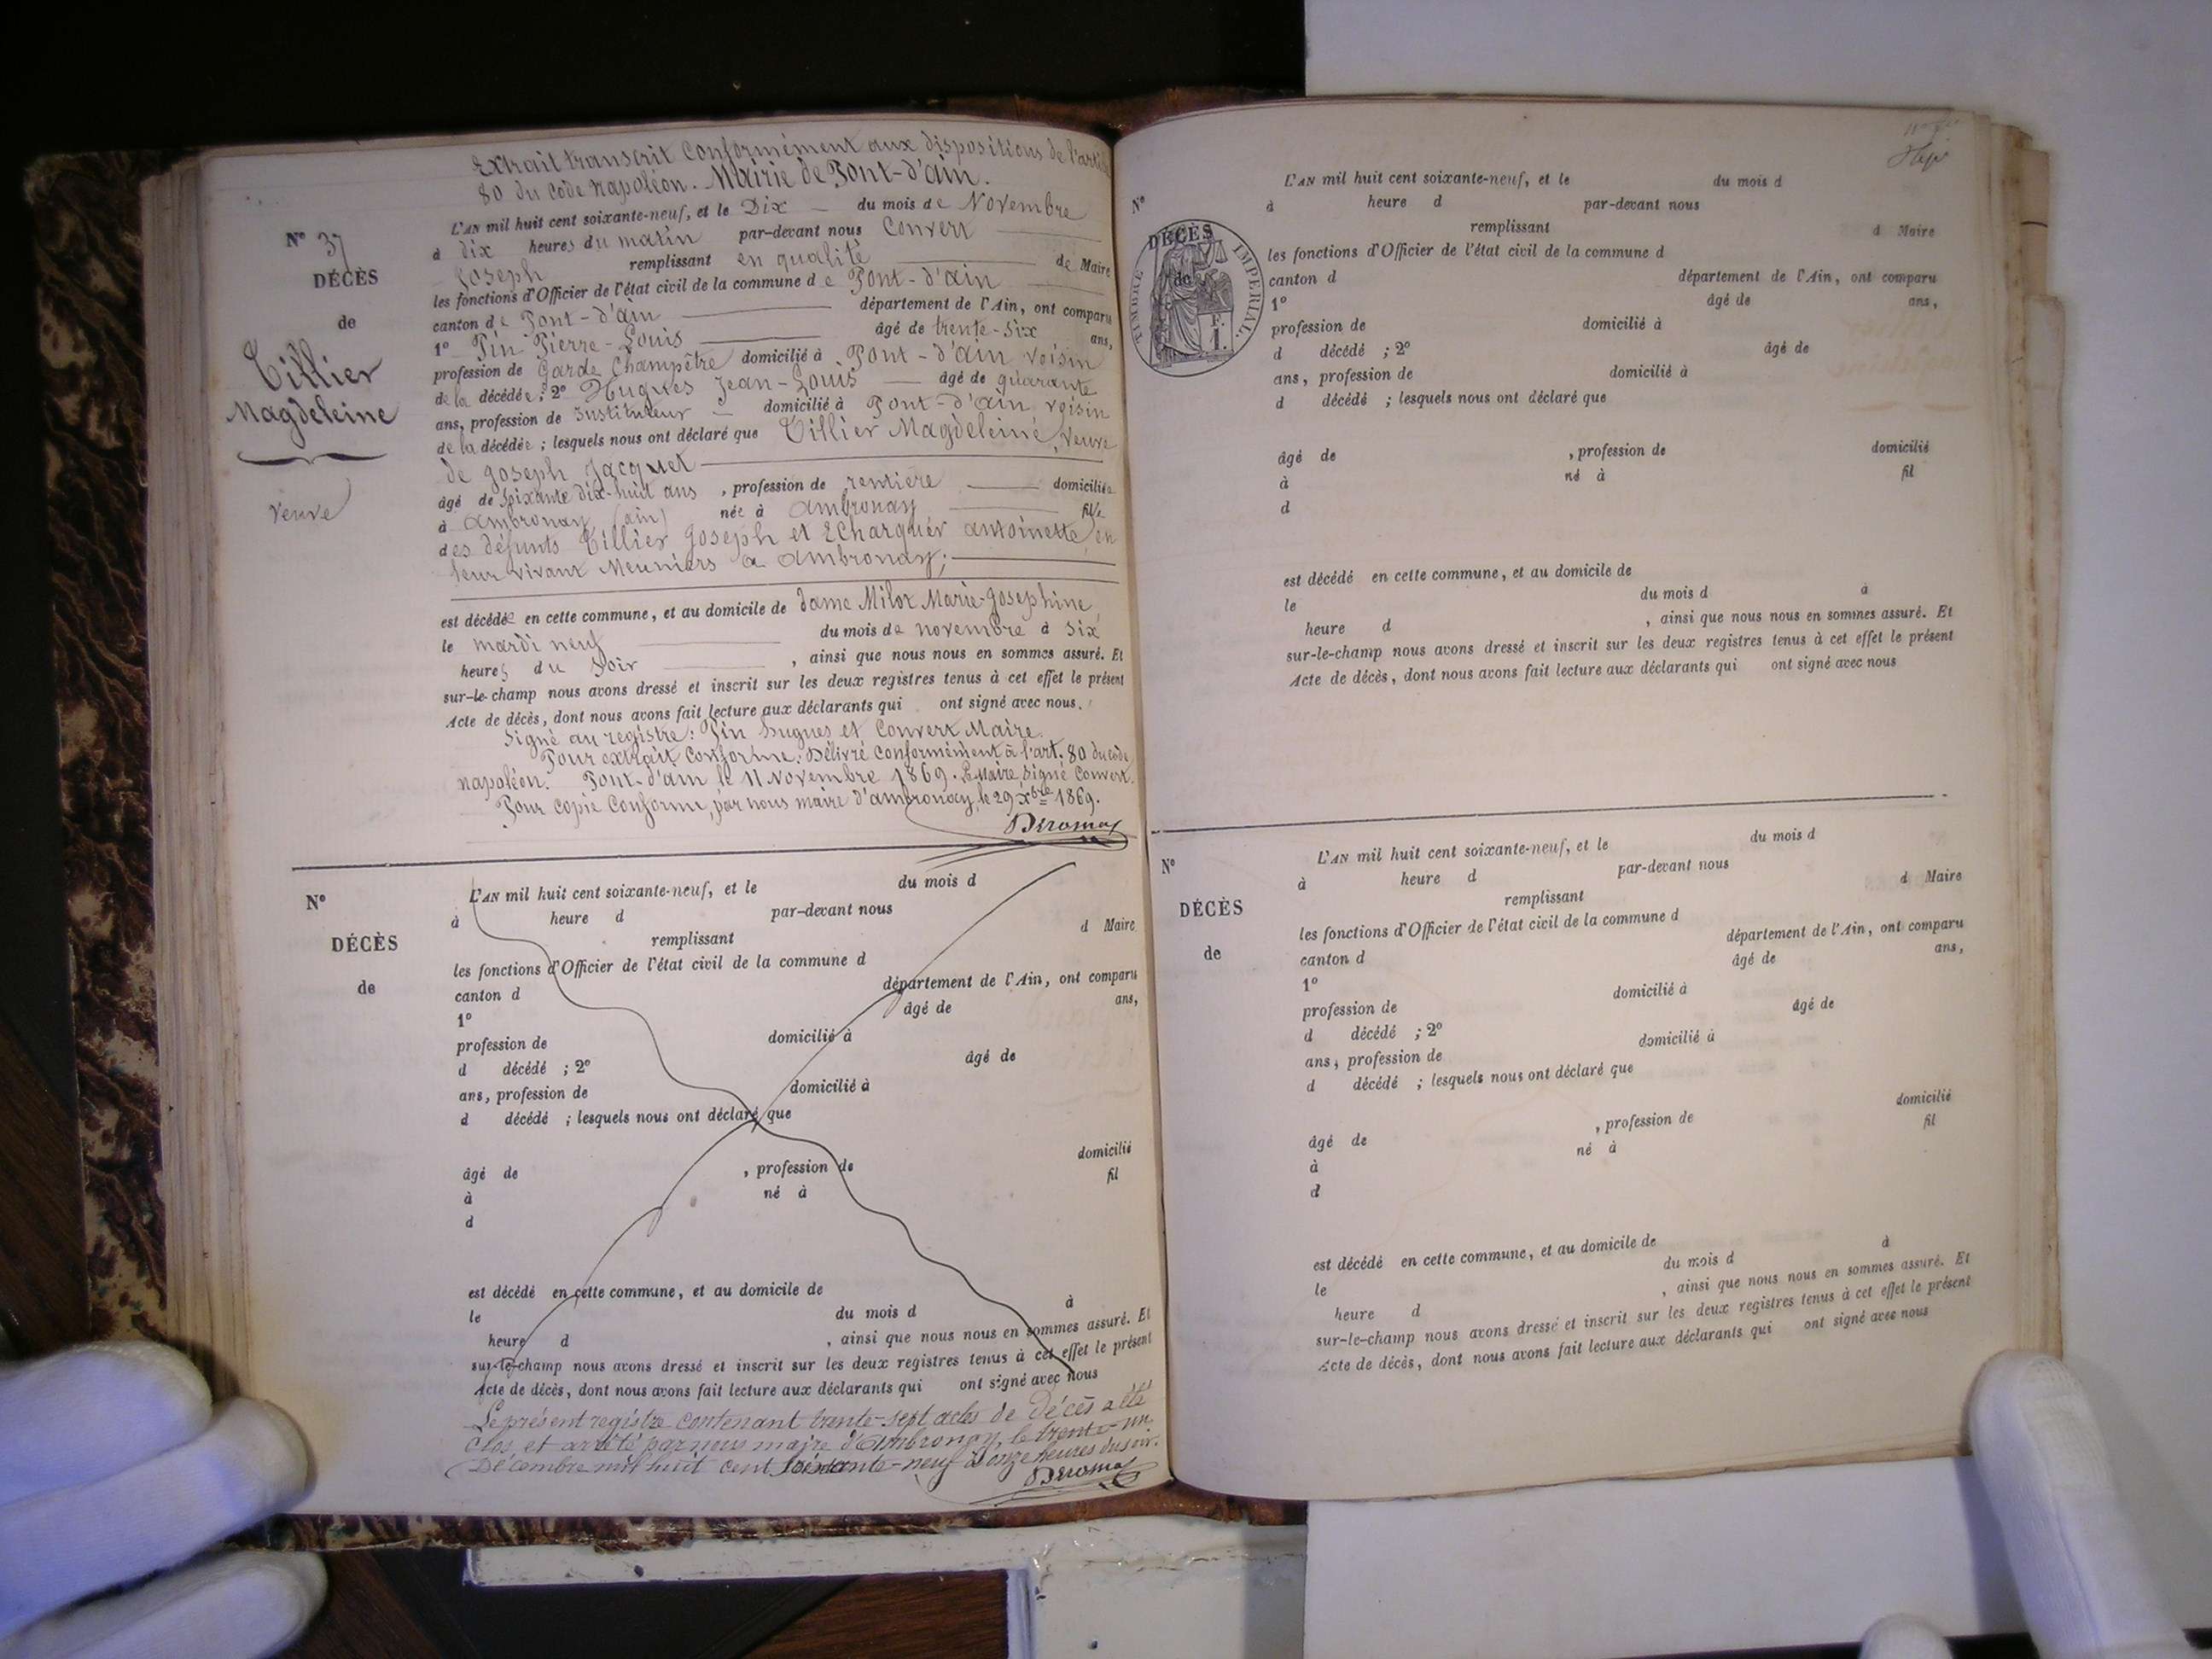 Extrait transcrit Conformément aux dispositions de l'article
80 du Code Napoléon. Mairie de Pont-d'ain.
N° 37
DÉCÈS
de
Tillier
Magdeleine
veuve
L'AN mil huit cent soixante-neuf, et le Dix du mois de Novembre
à dix heures du matin par-devant nous Convert
Joseph remplissant en qualité de Maire
les fonctions d'Officier de l'état civil de la commune de Pont-d'ain
canton de Pont-d'ain département de l'Ain, ont comparu
1° Pin Pierre-Louis âgé de trente-six ans,
profession de Garde Champêtre domicilié à Pont-d'ain voisin
de la décédée ; 2° Hugues Jean-Louis âgé de quarante
ans, profession de instituteur domicilié à Pont-d'ain voisin
de la décédée ; lesquels nous ont déclaré que Tillier Magdeleine, Veuve
de Joseph Jacquet
âgé de soixante dix-huit ans , profession de rentière domiciliée
à Ambronay (ain) née à Ambronay fille
des défunts Tillier Joseph et Echarquer antoinette, en
leur vivant Meuniers à Ambronay;
est décédée en cette commune, et au domicile de dame Miloz Marie-Josephine,
le mardi neuf du mois de novembre à six
heures du soir , ainsi que nous nous en sommes assuré. Et
sur-le-champ nous avons dressé et inscrit sur les deux registres tenus à cet effet le présent
Acte de décès, dont nous avons fait lecture aux déclarants qui ont signé avec nous.
Signé au registre: Pin Hugues et Convert Maire.
Pour extrait Conforme. Délivré Conformément à l'art. 80 du Code
napoléon. Pont-d'ain le 11 Novembre 1869. Le Maire Signé Convert.
Pour Copie Conforme, par nous maire d'ambronay, le 29 Xbre 1869.
N°
DÉCÈS
de
L'AN mil huit cent soixante-neuf, et le du mois d
à heure d par-devant nous
remplissant d Maire
les fonctions d'Officier de l'état civil de la commune d
canton d département de l'Ain, ont comparu
1° âgé de ans,
profession de domicilié à
d décédé ; 2° âgé de
ans, profession de domicilié à
d décédé ; lesquels nous ont déclaré que
âgé de , profession de domicilié
à né à fil
d
est décédé en cette commune, et au domicile de
le du mois d à
heure d , ainsi que nous nous en sommes assuré. Et
sur-le-champ nous avons dressé et inscrit sur les deux registres tenus à cet effet le présent
Acte de décès, dont nous avons fait lecture aux déclarants qui ont signé avec nous
Le présent registre contenant trente-sept actes de Décès a été
clos et arrêté par nous maire d'Ambronay, le trente-un
Décembre mil huit cent soixante-neuf à onze heures du soir.
N°
DÉCÈS
de
TIMBRE IMPERIAL
F.
1.
L'AN mil huit cent soixante-neuf, et le du mois d
à heure d par-devant nous
remplissant d Maire
les fonctions d'Officier de l'état civil de la commune d
canton d département de l'Ain, ont comparu
1° âgé de ans,
profession de domicilié à
d décédé ; 2° âgé de
ans, profession de domicilié à
d décédé ; lesquels nous ont déclaré que
âgé de , profession de domicilié
à né à fil
d
est décédé en cette commune, et au domicile de
le du mois d à
heure d , ainsi que nous nous en sommes assuré. Et
sur-le-champ nous avons dressé et inscrit sur les deux registres tenus à cet effet le présent
Acte de décès, dont nous avons fait lecture aux déclarants qui ont signé avec nous
N°
DÉCÈS
de
L'AN mil huit cent soixante-neuf, et le du mois d
à heure d par-devant nous
remplissant d Maire
les fonctions d'Officier de l'état civil de la commune d
canton d département de l'Ain, ont comparu
1° âgé de ans,
profession de domicilié à
d décédé ; 2° âgé de
ans, profession de domicilié à
d décédé ; lesquels nous ont déclaré que
âgé de , profession de domicilié
à né à fil
d
est décédé en cette commune, et au domicile de
le du mois d à
heure d , ainsi que nous nous en sommes assuré. Et
sur-le-champ nous avons dressé et inscrit sur les deux registres tenus à cet effet le présent
Acte de décès, dont nous avons fait lecture aux déclarants qui ont signé avec nous